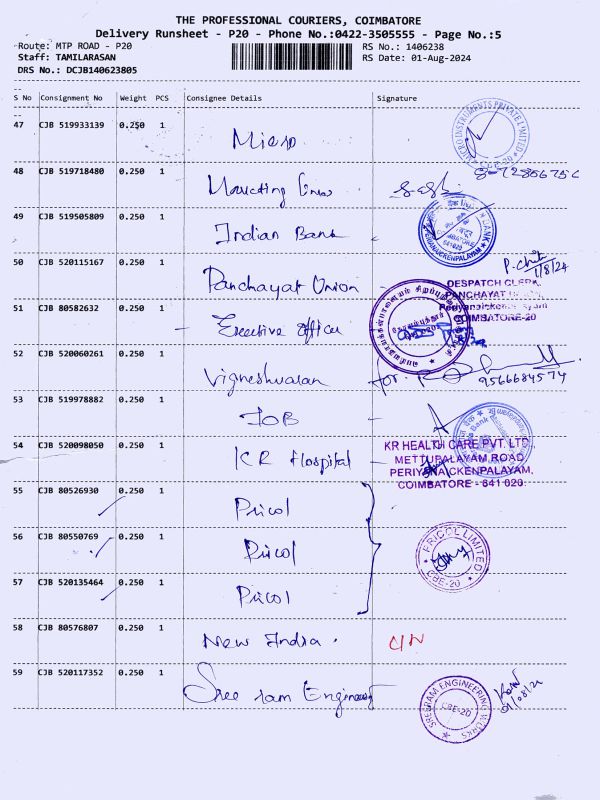 THE PROFESSIONAL COURIERS, COIMBATORE
Delivery Runsheet - P20 - Phone No.:0422-3505555 - Page No.:5
Route: MTP ROAD - P20
RS No.: 1406238
Staff: TAMILARASAN
RS Date: 01-Aug-2024
DRS No.: DCJB140623805
S No Consignment No Weight PCS Consignee Details Signature
47 CJB 519933139 0.250 1 Micro
MICRO INSTRUMENTS PRIVATE LIMITED CBE-20
48 CJB 519718480 0.250 1 Marketing
49 CJB 519505809 0.250 1 Indian Bank
PERIYANAICKENPALAYAM
641020
50 CJB 520115167 0.250 1 Panchayat Union
1/8/24
DESPATCH CLERK
PANCHAYAT
COIMBATORE-20
51 CJB 80582632 0.250 1 Executive officer
52 CJB 520060261 0.250 1 Vigneshwaran
for.
9566684574
53 CJB 519978882 0.250 1 IOB
54 CJB 520098050 0.250 1 KR Hospital
KR HEALTH CARE PVT LTD.,
METTUPALAYAM ROAD,
PERIYANAICKENPALAYAM,
COIMBATORE - 641 020.
55 CJB 80526930 0.250 1 Pricol
56 CJB 80550769 0.250 1 Pricol
PRICOL LIMITED CBE-20
57 CJB 520135464 0.250 1 Pricol
58 CJB 80576807 0.250 1 New India. C/N
59 CJB 520117352 0.250 1 Sree ram Engineers
SREERAM ENGINEERING WORKS CBE-20